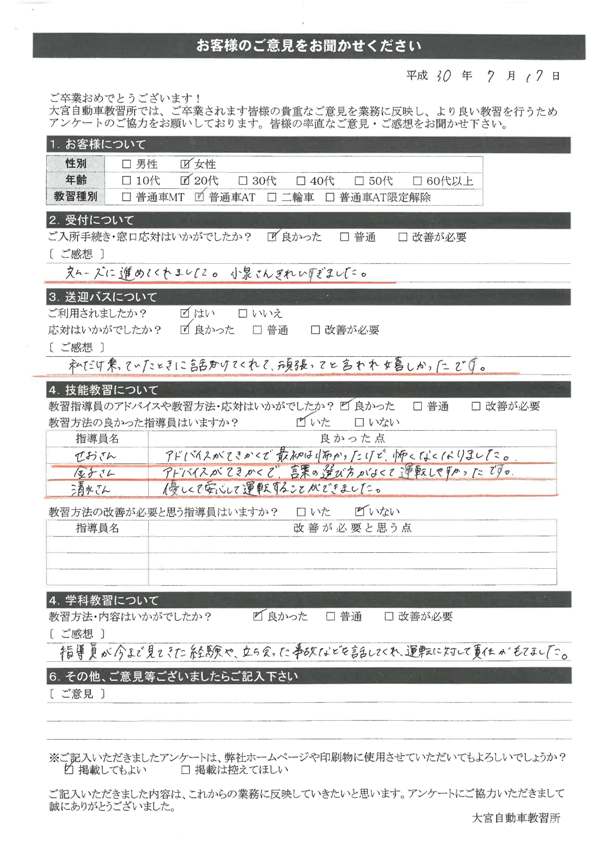 お客様のご意見をお聞かせください
平成 30 年 7 月 17 日
ご卒業おめでとうございます!
大宮自動車教習所では、ご卒業されます皆様の貴重なご意見を業務に反映し、より良い教習を行うため
アンケートのご協力をお願いしております。皆様の率直なご意見・ご感想をお聞かせ下さい。
1. お客様について
性別 □ 男性 ☑ 女性
年齢 □ 10代 ☑ 20代 □ 30代 □ 40代 □ 50代 □ 60代以上
教習種別 □ 普通車MT ☑ 普通車AT □ 二輪車 □ 普通車AT限定解除
2. 受付について
ご入所手続き・窓口応対はいかがでしたか? ☑ 良かった □ 普通 □ 改善が必要
[ ご感想 ]
スムーズに進めてくれました。小泉さんきれいすぎました。
3. 送迎バスについて
ご利用されましたか? ☑ はい □ いいえ
応対はいかがでしたか? ☑ 良かった □ 普通 □ 改善が必要
[ ご感想 ]
私だけ乗っていたときに話かけてくれて、頑張ってと言われ嬉しかったです。
4. 技能教習について
教習指導員のアドバイスや教習方法・応対はいかがでしたか? ☑ 良かった □ 普通 □ 改善が必要
教習方法の良かった指導員はいますか? ☑ いた □ いない
指導員名 良かった点
せおさん アドバイスがてきかくで最初は怖かったけど、怖くなくなりました。
金子さん アドバイスがてきかくで、言葉の選び方がよくて運転しやすかったです。
清水さん 優しくて安心して運転することができました。
教習方法の改善が必要と思う指導員はいますか? □ いた ☑ いない
指導員名 改善が必要と思う点
4. 学科教習について
教習方法・内容はいかがでしたか? ☑ 良かった □ 普通 □ 改善が必要
[ ご感想 ]
指導員が今まで見てきた経験や、立ち会った事故などを話してくれ、運転に対して責任がもてました。
6. その他、ご意見等ございましたらご記入下さい
[ ご意見 ]
※ご記入いただきましたアンケートは、弊社ホームページや印刷物に使用させていただいてもよろしいでしょうか?
☑ 掲載してもよい □ 掲載は控えてほしい
ご記入いただきました内容は、これからの業務に反映していきたいと思います。アンケートにご協力いただきまして
誠にありがとうございました。
大宮自動車教習所